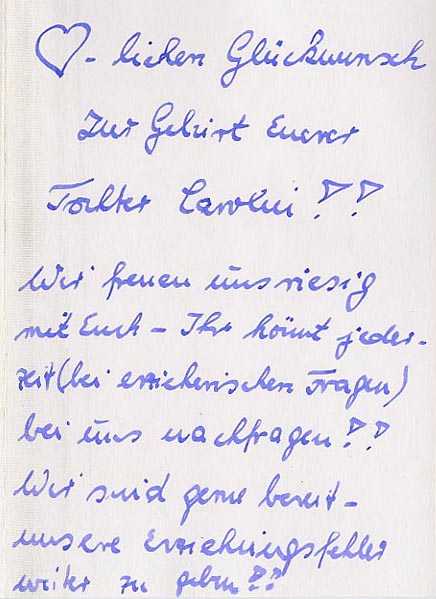 ♡-lichen Glückwunsch
Zur Geburt Eurer
Tochter Carolin!!
Wir freuen uns riesig
mit Euch - Ihr könnt jeder-
zeit (bei erzieherischen Fragen)
bei uns nachfragen!!
Wir sind gerne bereit -
unsere Erziehungsfehler
weiter zu geben!!